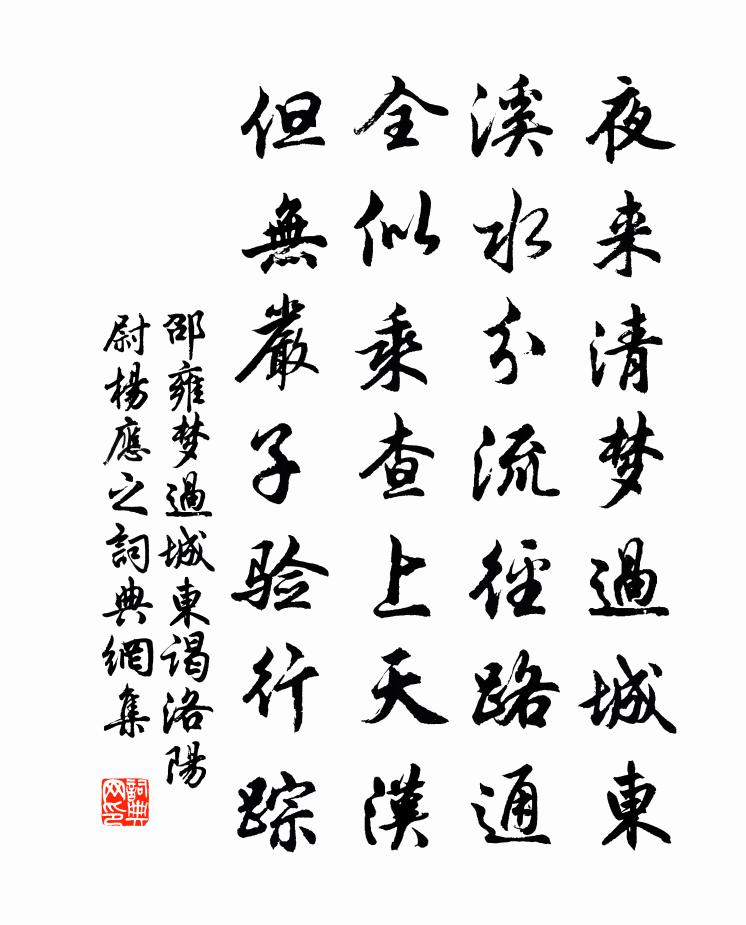 夜来清梦過城東
溪水分流徑路通
全似乘查上天漢
但無嚴子验行踪
邵雍梦過城東谒洛陽
尉楊應之詞典網集
詞典網印